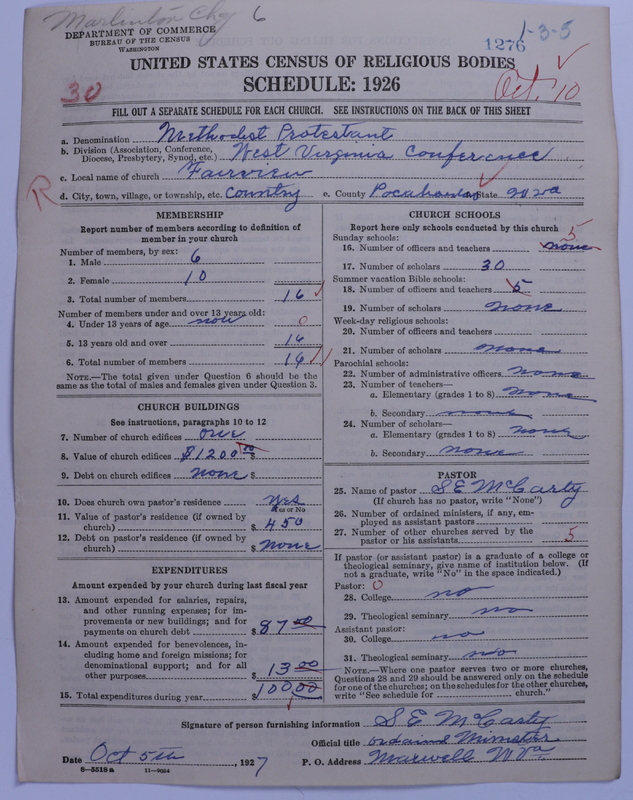 Marlinton Chg 6
DEPARTMENT OF COMMERCE
BUREAU OF THE CENSUS
WASHINGTON
1276
1-3-5
UNITED STATES CENSUS OF RELIGIOUS BODIES
SCHEDULE: 1926
30
Oct. 10
FILL OUT A SEPARATE SCHEDULE FOR EACH CHURCH. SEE INSTRUCTIONS ON THE BACK OF THIS SHEET
a. Denomination Methodist Protestant
b. Division (Association, Conference, Diocese, Presbytery, Synod, etc.) West Virginia Conference
c. Local name of church Fairview
R
d. City, town, village, or township, etc. Country e. County Pocahontas State W va
MEMBERSHIP
Report number of members according to definition of
member in your church
Number of members, by sex:
1. Male 6
2. Female 10
3. Total number of members 16
Number of members under and over 13 years old:
4. Under 13 years of age 0
5. 13 years old and over 16
6. Total number of members 16
NOTE.—The total given under Question 6 should be
same as the total of males and females given under Question 3.
CHURCH BUILDINGS
See instructions, paragraphs 10 to 12
7. Number of church edifices one
8. Value of church edifices $1200 00 $
9. Debt on church edifices none $
10. Does church own pastor's residence Yes
Yes or No
11. Value of pastor's residence (if owned by
church) $ 450
12. Debt on pastor's residence (if owned by
church) $ none
EXPENDITURES
Amount expended by your church during last fiscal year
13. Amount expended for salaries, repairs,
and other running expenses; for im-
provements or new buildings; and for
payments on church debt $ 87 00
14. Amount expended for benevolences, in-
cluding home and foreign missions; for
denominational support; and for all
other purposes $ 13 00
15. Total expenditures during year $ 100,00
CHURCH SCHOOLS
Report here only schools conducted by this church
5
Sunday schools:
16. Number of officers and teachers none
17. Number of scholars 30
Summer vacation Bible schools:
18. Number of officers and teachers 5
19. Number of scholars none
Week-day religious schools:
20. Number of officers and teachers
21. Number of scholars none
Parochial schools:
22. Number of administrative officers none
23. Number of teachers—
a. Elementary (grades 1 to 8) none
b. Secondary none
24. Number of scholars—
a. Elementary (grades 1 to 8) none
b. Secondary none
PASTOR
25. Name of pastor S E McCarty
(If church has no pastor, write "None")
26. Number of ordained ministers, if any, em-
ployed as assistant pastors
27. Number of other churches served by the
pastor or his assistants 5
If pastor (or assistant pastor) is a graduate of a college or
theological seminary, give name of institution below. (If
not a graduate, write "No" in the space indicated.)
Pastor: 0
28. College no
29. Theological seminary no
Assistant pastor:
30. College no
31. Theological seminary no
NOTE.—Where one pastor serves two or more churches,
Questions 28 and 29 should be answered only on the schedule
for one of the churches; on the schedules for the other churches,
write "See schedule for church."
Signature of person furnishing information S E McCarty
Official title ordaind Minister
Date Oct 5th, 1927 P. O. Address Maxwell W Va
8—5518a 11—9054